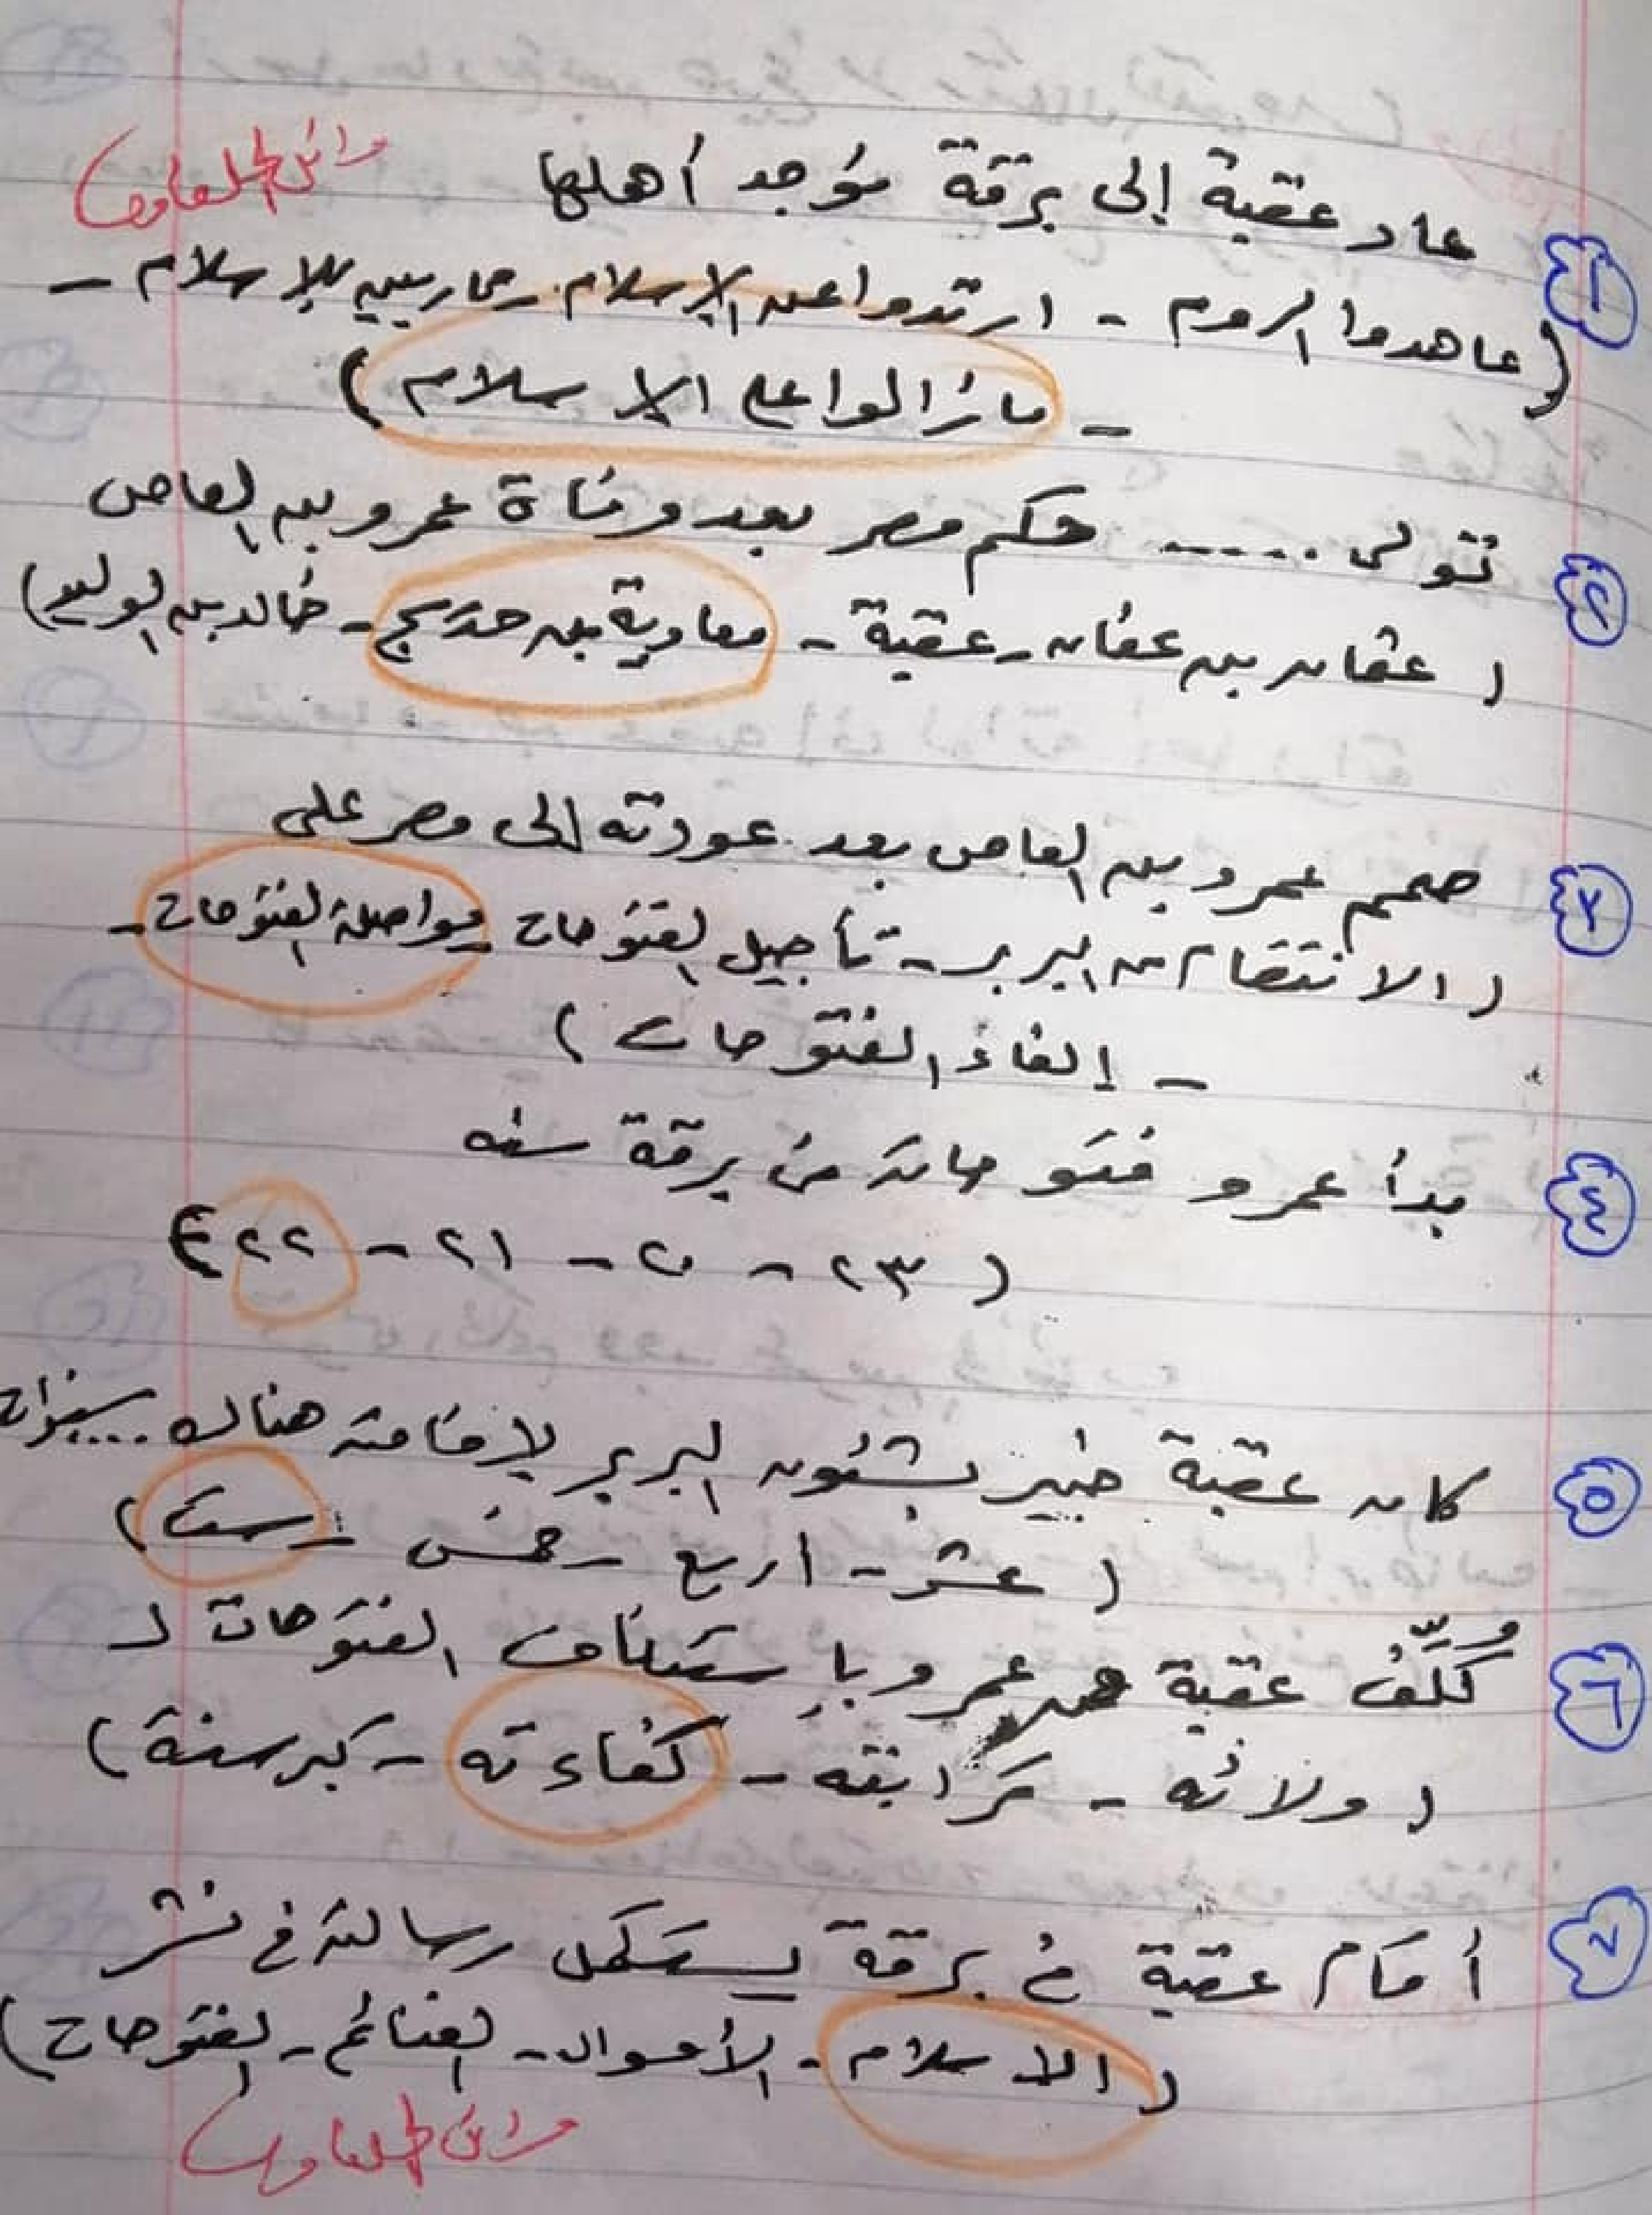 وائل الحلفاوى
١ عاد عقبة إلى برقة فوجد أهلها
(عاهدوا الروم - ارتدوا عن الإسلام - محاربين للإسلام -
- مازالوا على الاسلام)
٢ تولى ..... حكم مصر بعد وفاة عمرو بن العاص
( عثمان بن عفان - عقبة - معاوية بن حديج - خالد بن الوليد)
٣ صمم عمرو بن العاص بعد عودته إلى مصر على
( الانتقام من البربر - تأجيل الفتوحات - مواصلة الفتوحات -
- إلغاء الفتوحات )
٤ بدأ عمرو فتوحاته من برقة سنه
( ٢٣ - ٢٠ - ٢١ - ٢٢ )
٥ كان عقبة خبير بشئون البربر لإقامته هناك .... سنوات
( عشر - اربع - خمس - ست )
٦ كُلِّفُ عقبة من عمرو بإستئناف الفتوحات لـ
( ولائه - قرابته - كفاءته - كبر سنة )
٧ أقام عقبة فى برقة يستكمل رسالته فى نشر
( الاسلام - الأموال - الغنائم - الفتوحات )
وائل الحلفاوى